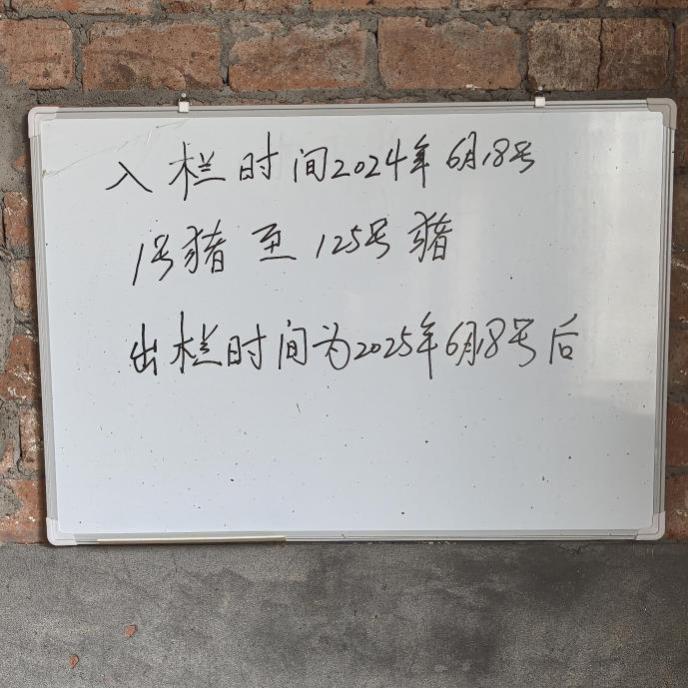 入栏时间2024年6月18号
1号猪至125号猪
出栏时间为2025年6月18号后